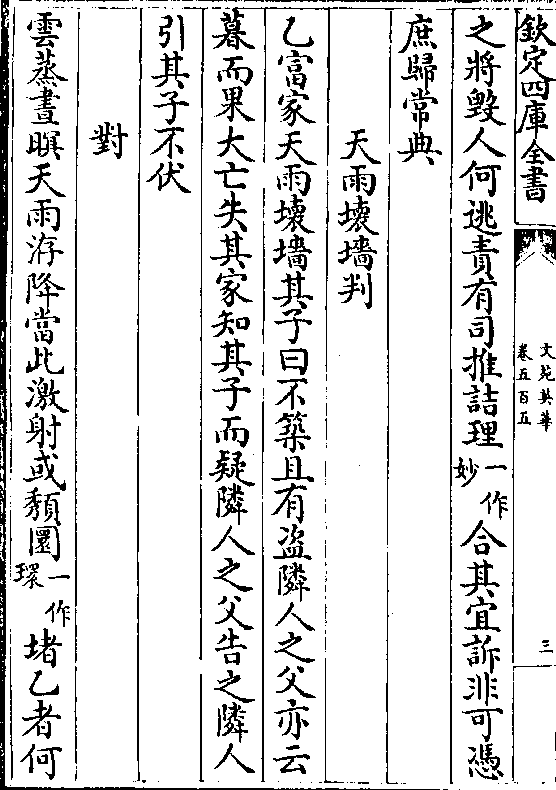 欽定四庫全書
文苑英華
卷五百五
三
之將毀人何逃責有司推詰理一作妙合其宜訴非可憑
庶歸常典
天雨壞墻判
乙富家天雨壞墻其子曰不築且有盗隣人之父亦云
暮而果大亡失其家知其子而疑隣人之父告之隣人
引其子不伏
對
雲蒸晝暝天雨洊降當此激射或頽圜一作環堵乙者何